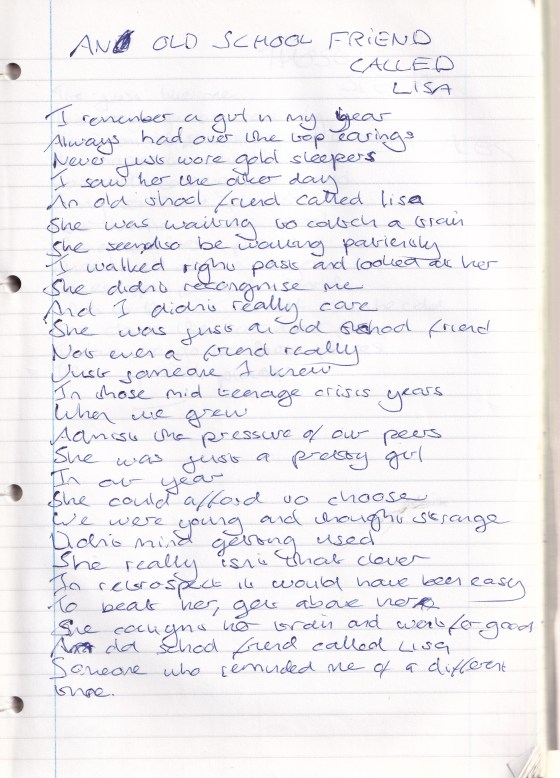 AN OLD SCHOOL FRIEND
CALLED
LISA
I remember a girl in my year
Always had over the top earings
Never just wore gold sleepers
I saw her the other day
An old school friend called lisa
She was waiting to catch a train
She seemd to be waiting patiently
I walked right past and looked at her
She didn't recognise me
And I didn't really care
She was just an old school friend
Not even a friend really
Just someone I knew
In those mid teenage crisis years
When we grew
Admist the pressure of our peers
She was just a pretty girl
In our year
She could afford to choose
We were young and thought strange
Didn't mind getting used
She really isn't that clever
In retrospect it would have been easy
To beat her, get above her
She caught her train and went for good
An old school friend called Lisa
Someone who reminded me of a different
time.